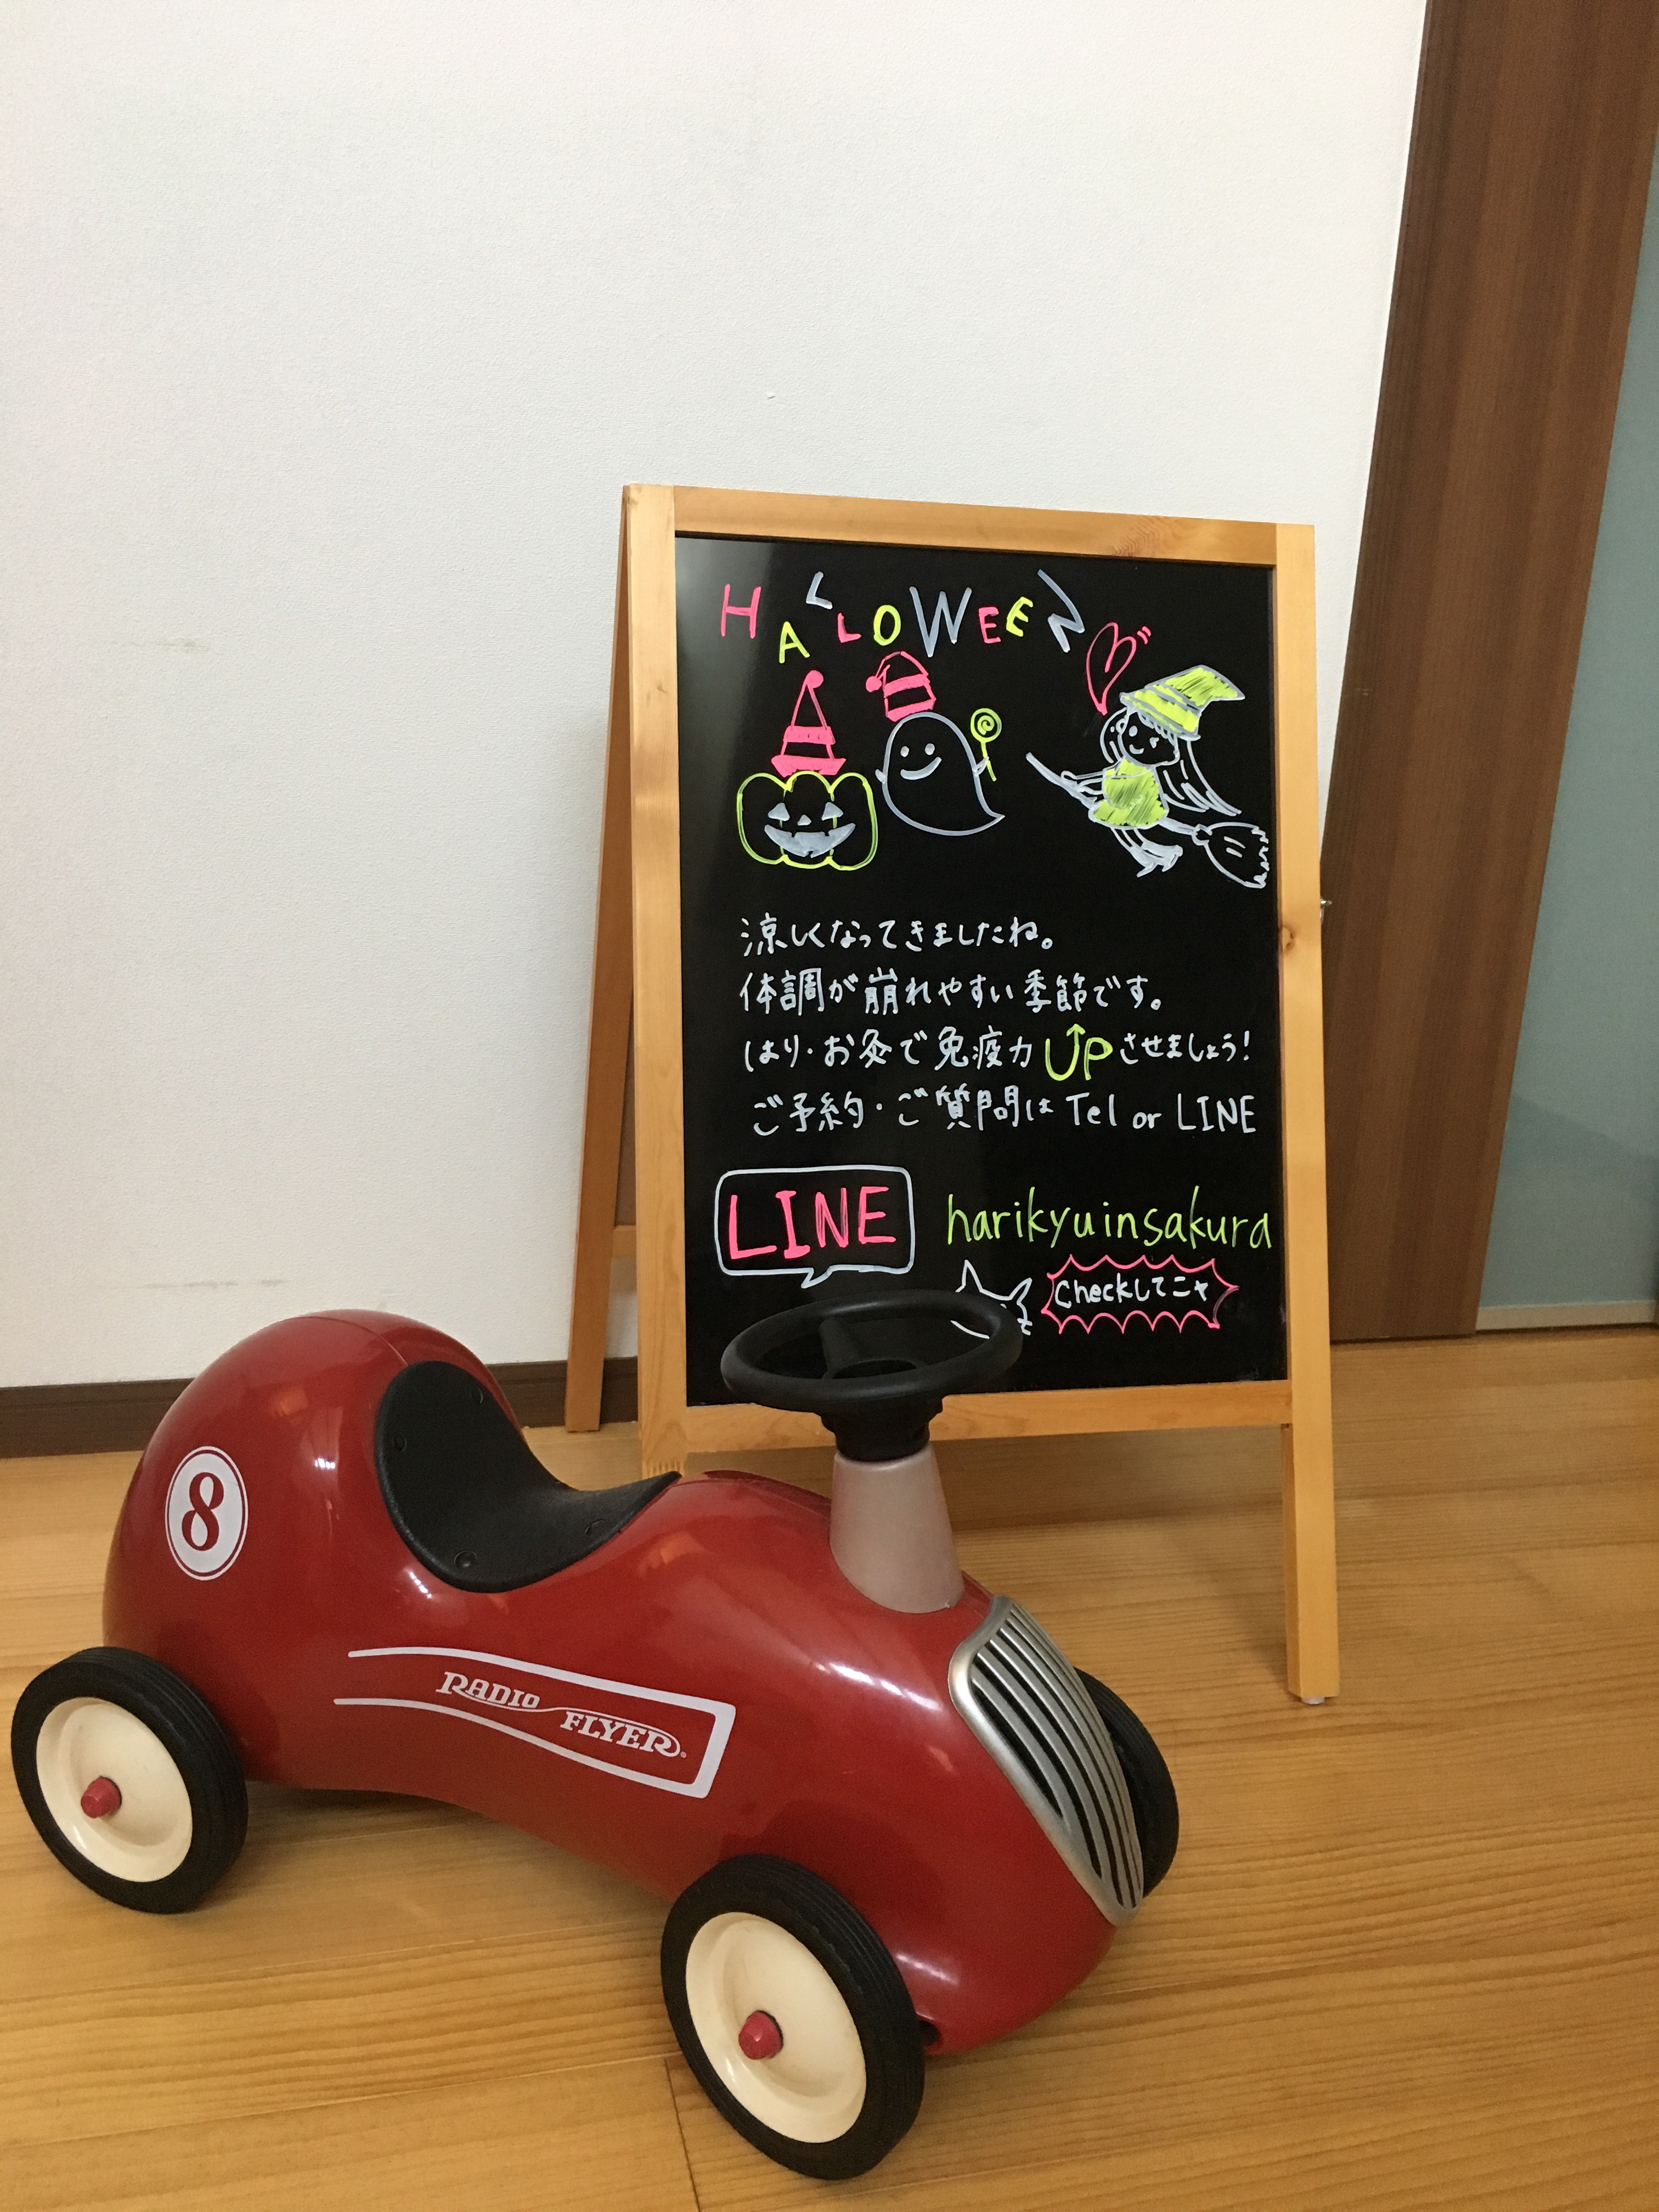 HALLOWEEN
涼しくなってきましたね。
体調が崩れやすい季節です。
はり・お灸で免疫力UPさせましょう!
ご予約・ご質問は Tel or LINE
LINE harikyuinsakura
Checkしてニャ
8
RADIO
FLYER®